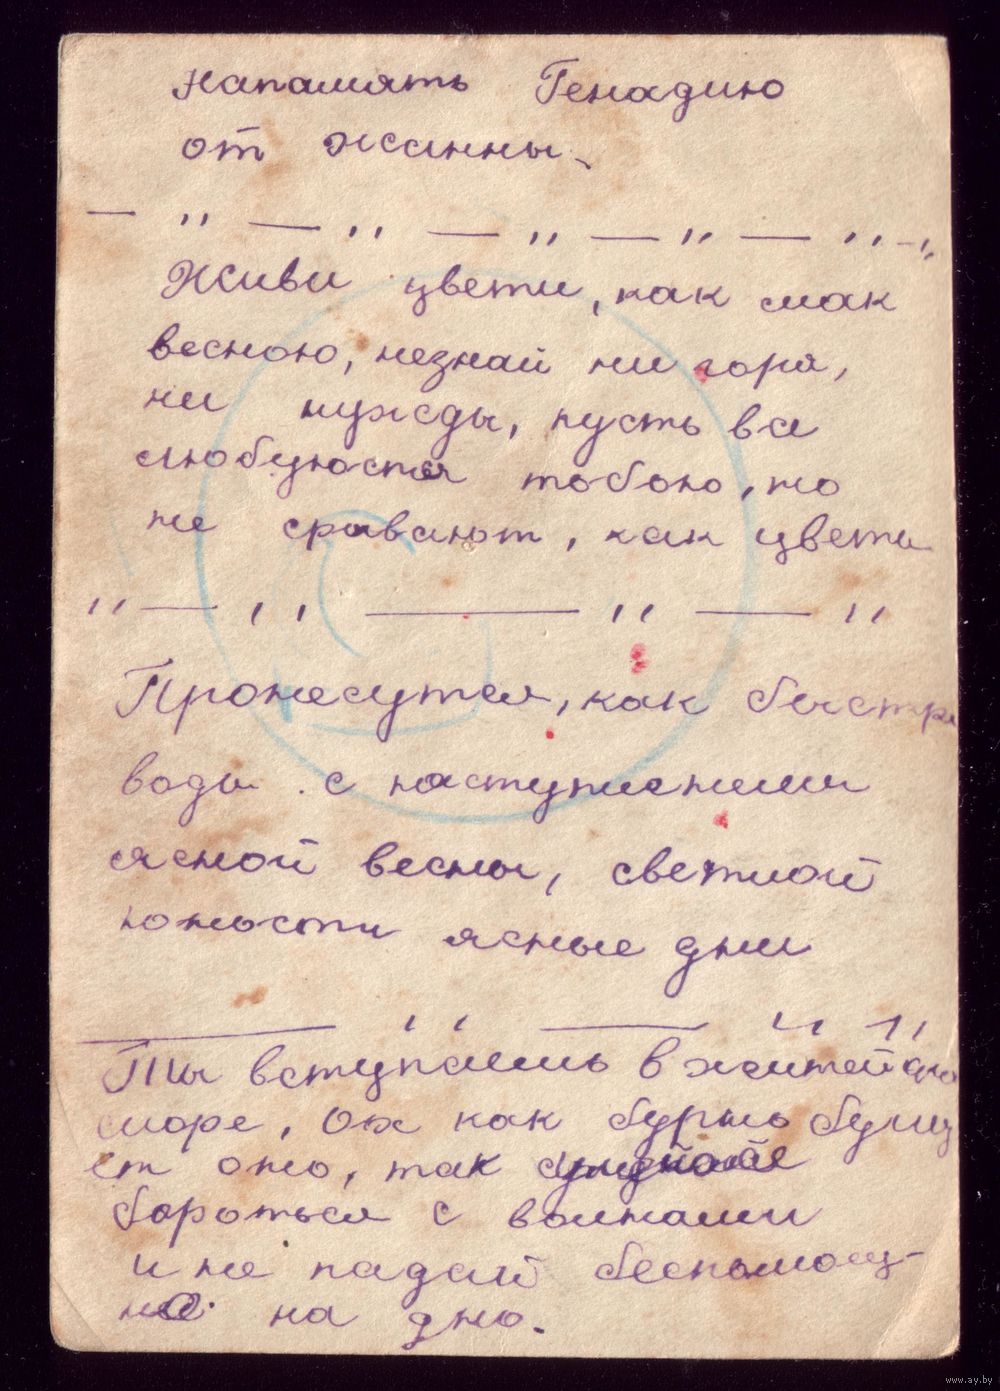 Напамять Генадию
от Жанны.
— " — " — " — " — " — "
Живи цвети, как мак
весною, незнай ни горя,
ни нужды, пусть все
любуюстя тобою, но
не сравают, как цветы
" — " — " — "
Пронесутся, как быстры
воды с наступлением
ясной весны, светлой
юности ясные дни
— " — " "
Ты вступаешь в житейско
море, Ох как бурно бушу
ет оно, так
бороться с волнами
и не падай беспомощ-
но на дно.
www.ay.by